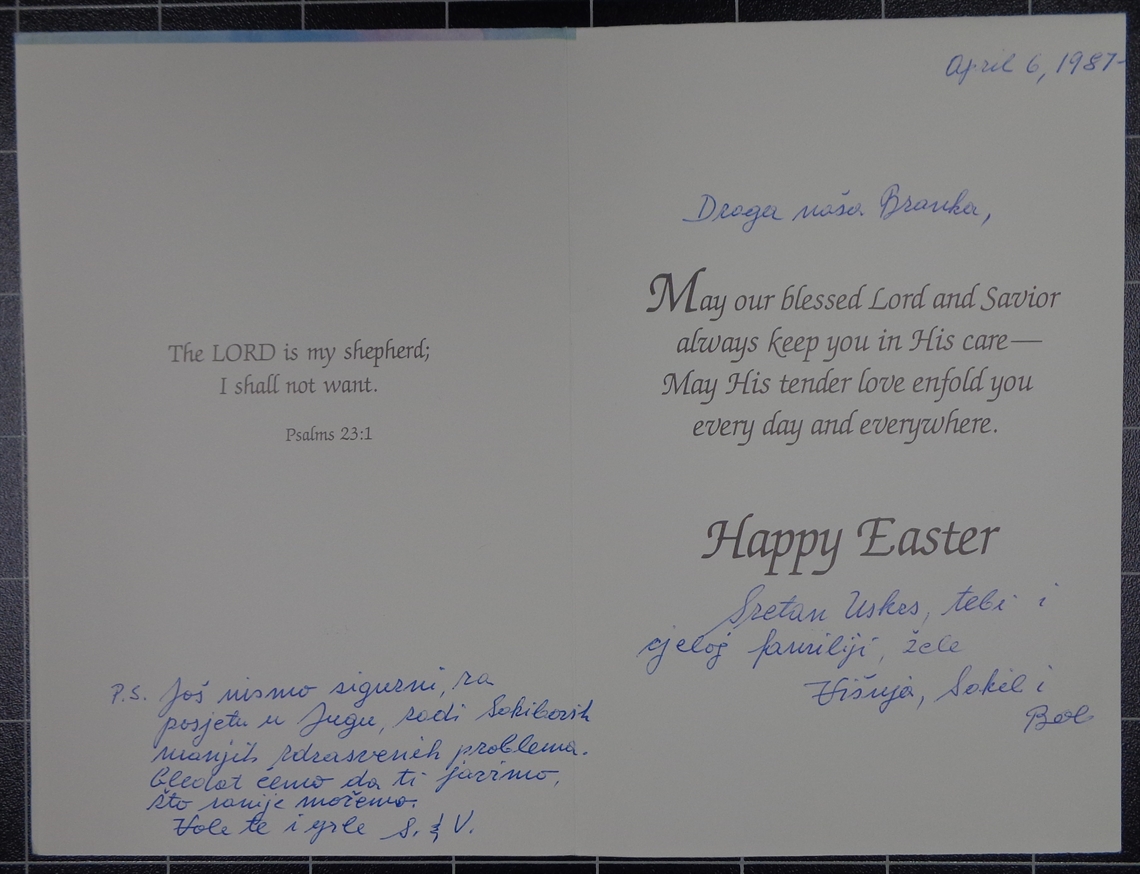 The LORD is my shepherd;
I shall not want.
Psalms 23:1
P.S. Još nismo sigurni, za
posjetu u Jugu, radi Sokilovih
manjih zdrasvenih problema.
Gledat ćemo da ti javimo,
što ranije možemo.
Vole te i grle S. & V.
April 6, 1987-
Draga naša Branka,
May our blessed Lord and Savior
always keep you in His care—
May His tender love enfold you
every day and everywhere.
Happy Easter
Sretan Uskrs, tebi i
cjeloj familiji, žele
Višnja, Sokil i
Bob